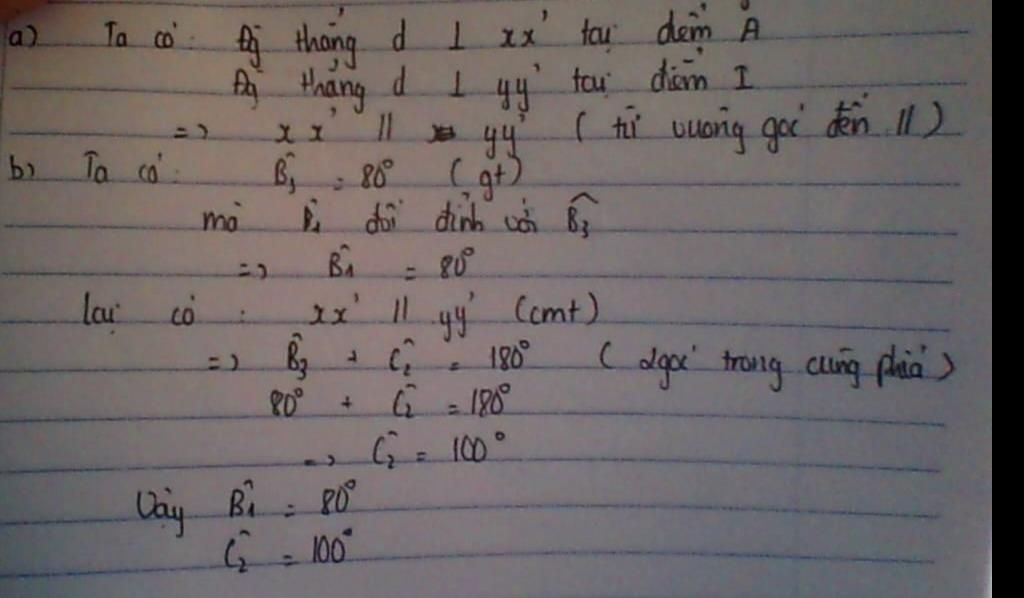 a) Ta có: Đg thẳng d ⊥ xx' tại điểm A
Đg thẳng d ⊥ yy' tại điểm I
=> xx' // yy' ( từ vuông góc đến // )
b) Ta có: B̂₃ = 80° ( gt )
mà B̂₁ đối đỉnh với B̂₃
=> B̂₁ = 80°
lại có : xx' // yy' (cmt)
=> B̂₃ + Ĉ₂ = 180° ( 2góc trong cùng phía )
80° + Ĉ₂ = 180°
=> Ĉ₂ = 100°
Vậy B̂₁ = 80°
Ĉ₂ = 100°